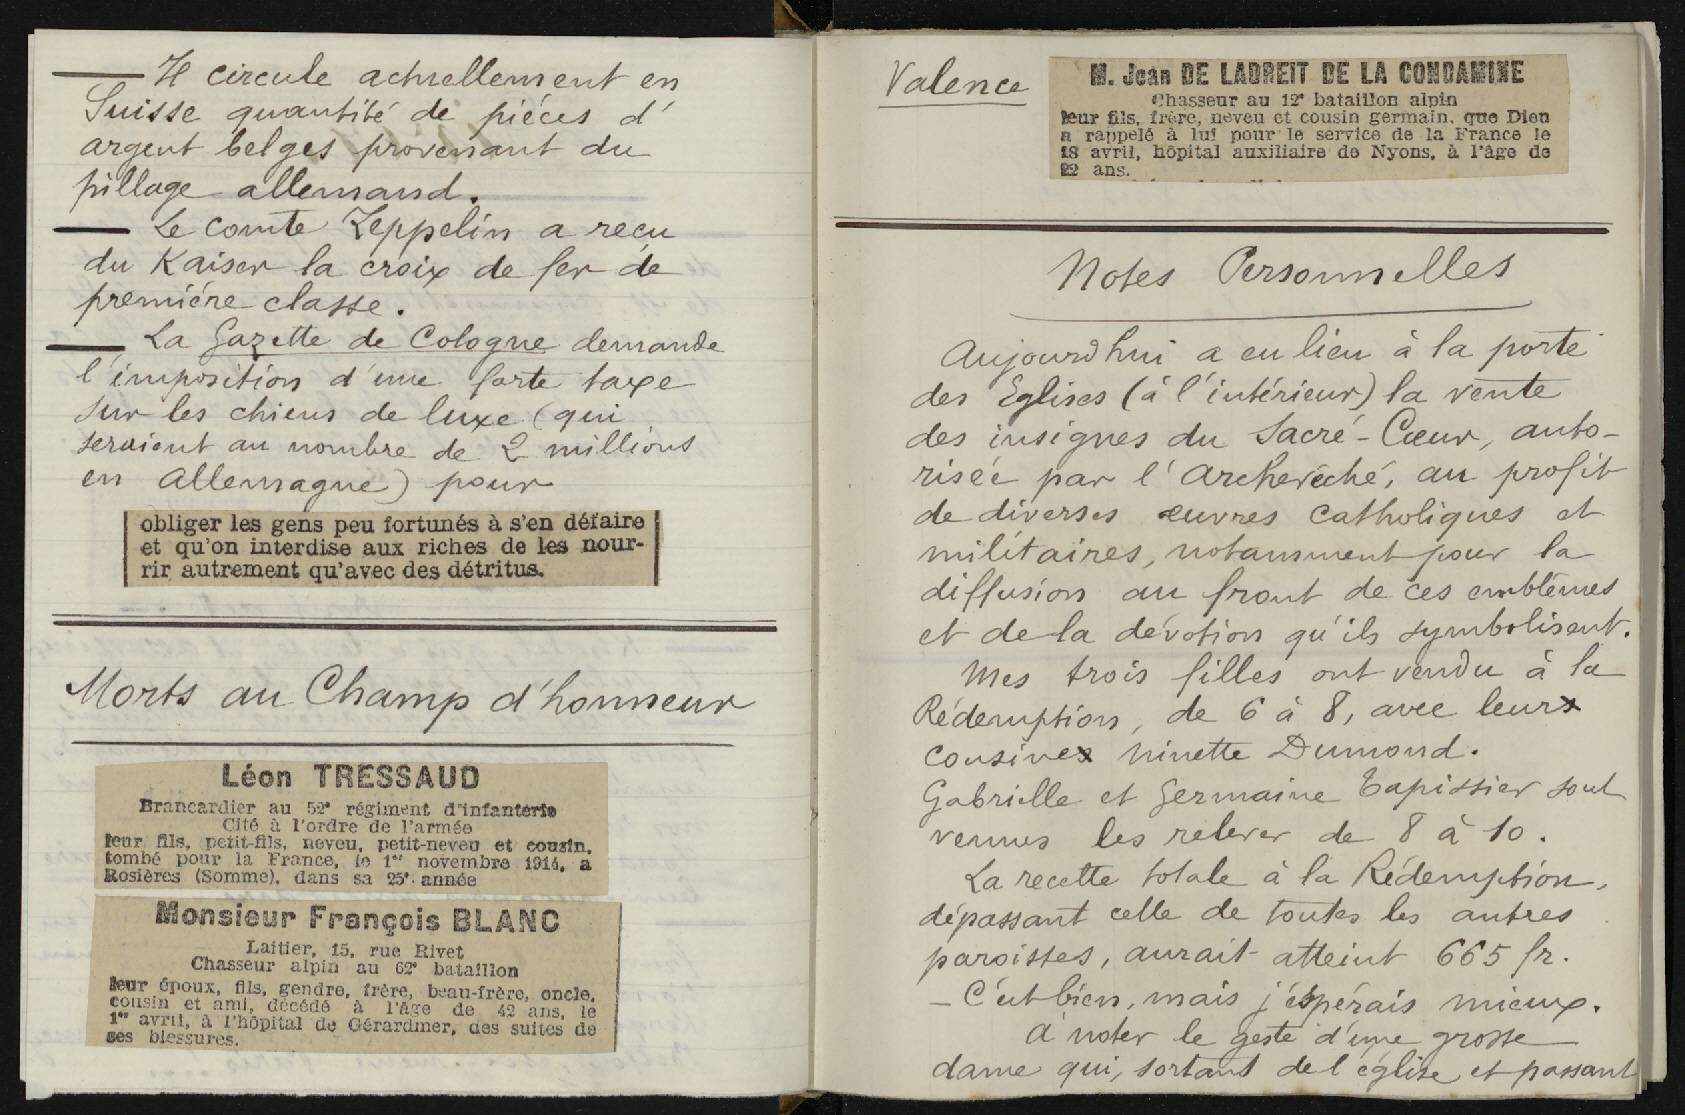 — Il circule actuellement en
Suisse quantité de pièces d'
argent belges provenant du
pillage allemand.
— Le comte Zeppelin a reçu
du Kaiser la croix de fer de
première classe.
— La Gazette de Cologne demande
l'imposition d'une forte taxe
sur les chiens de luxe (qui
seraient au nombre de 2 millions
en Allemagne) pour
obliger les gens peu fortunés à s'en défaire
et qu'on interdise aux riches de les nour-
rir autrement qu'avec des détritus.
Morts au Champ d'honneur
Léon TRESSAUD
Brancardier au 52e régiment d'infanterie
Cité à l'ordre de l'armée
leur fils, petit-fils, neveu, petit-neveu et cousin,
tombé pour la France, le 1er novembre 1914, a
Rosières (Somme), dans sa 25e année
Monsieur François BLANC
Laitier, 15, rue Rivet
Chasseur alpin au 62e bataillon
leur époux, fils, gendre, frère, beau-frère, oncle,
cousin et ami, décédé à l'âge de 42 ans, le
1er avril, à l'hôpital de Gérardmer, des suites de
ses blessures.
Valence
M. Jean DE LADREIT DE LA CONDAMINE
Chasseur au 12e bataillon alpin
leur fils, frère, neveu et cousin germain, que Dieu
a rappelé à lui pour le service de la France le
18 avril, hôpital auxiliaire de Nyons, à l'âge de
22 ans.
Notes Personnelles
Aujourd'hui a eu lieu à la porte
des Eglises (à l'intérieur) la vente
des insignes du Sacré-Cœur, auto-
risée par l'Archevêché, au profit
de diverses œuvres catholiques et
militaires, notamment pour la
diffusion au front de ces emblèmes
et de la dévotion qu'ils symbolisent.
Mes trois filles ont vendu à la
Rédemption, de 6 à 8, avec leur
cousine Ninette Dumond.
Gabrielle et Germaine Tapissier sont
venues les relever de 8 à 10.
La recette totale à la Rédemption,
dépassant celle de toutes les autres
paroisses, aurait atteint 665 fr.
— C'est bien, mais j'éspérais mieux.
A noter le geste d'une grosse
dame qui, sortant de l'église et passant